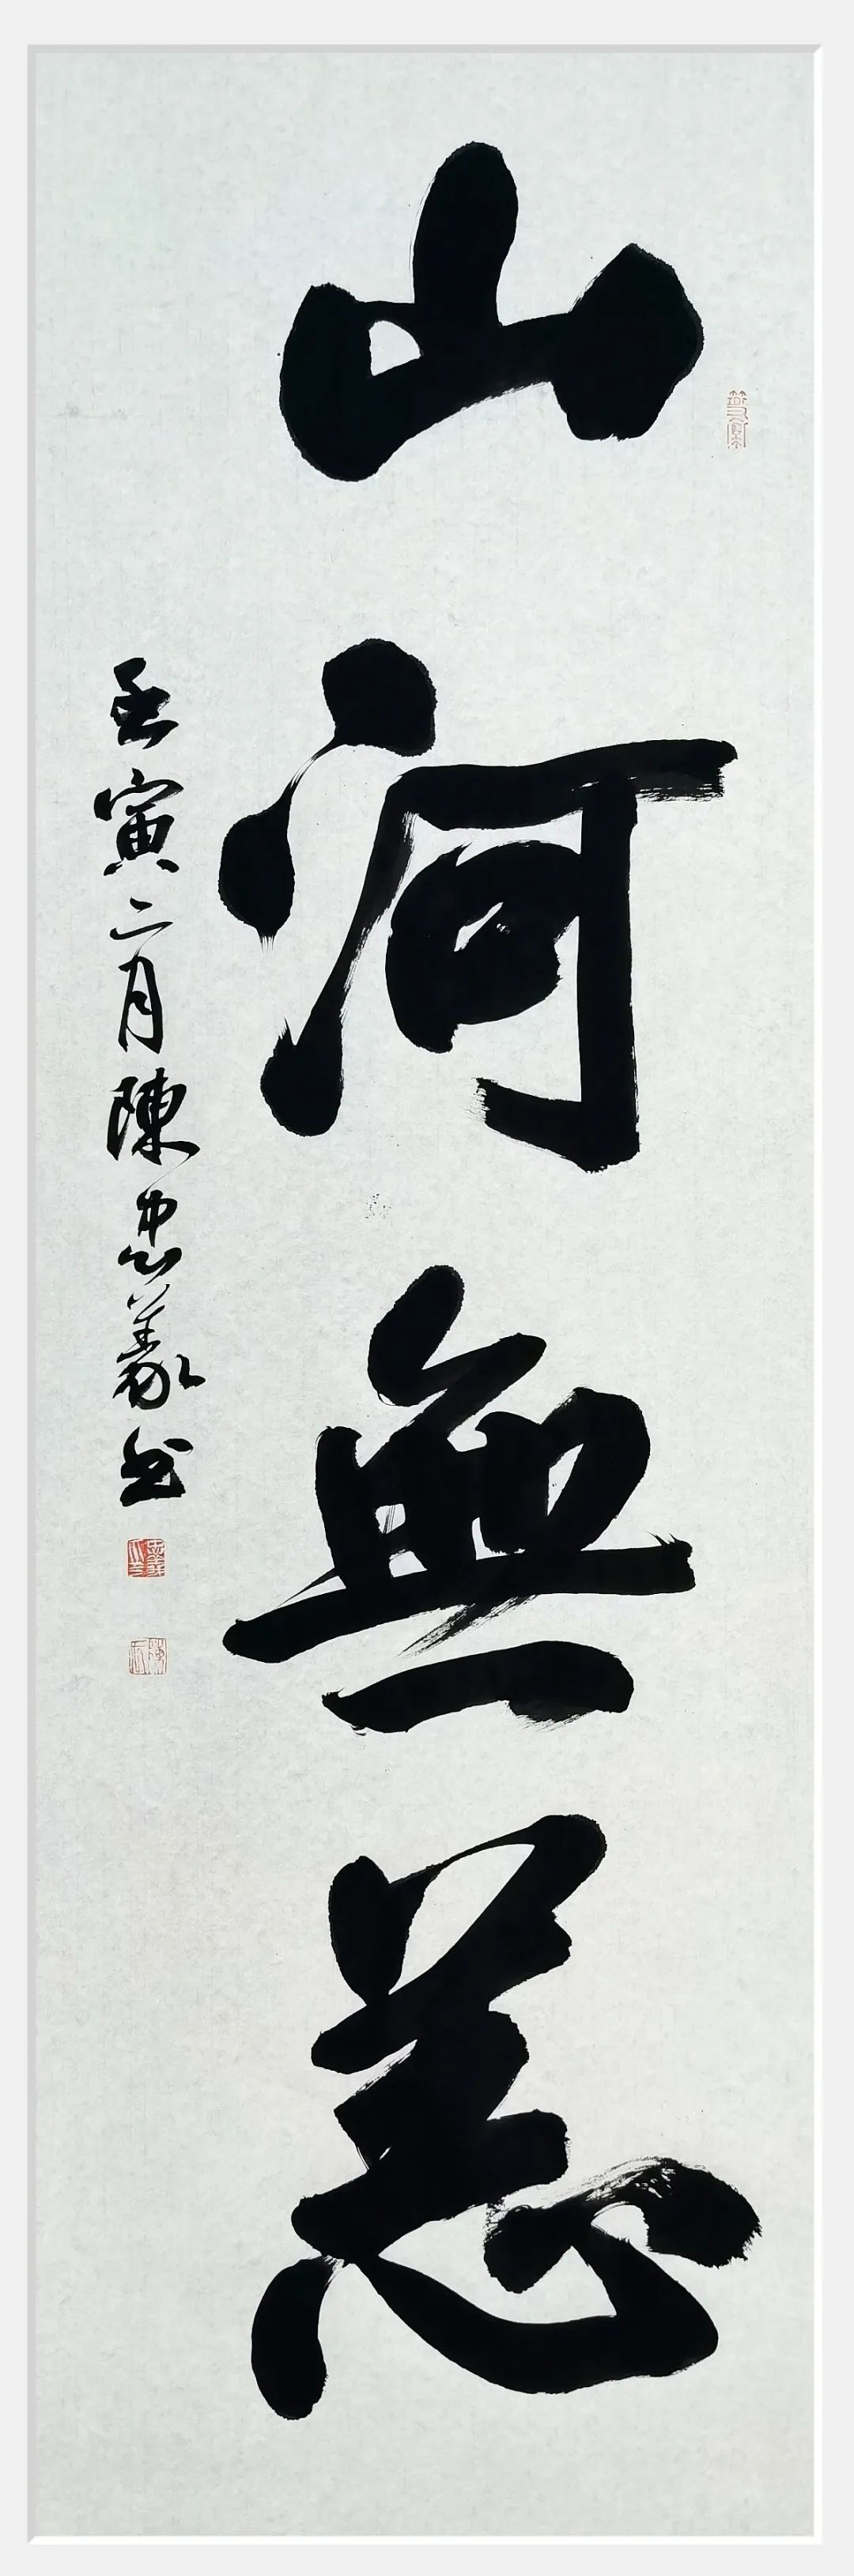 山河無恙
壬寅二月陳忠義書